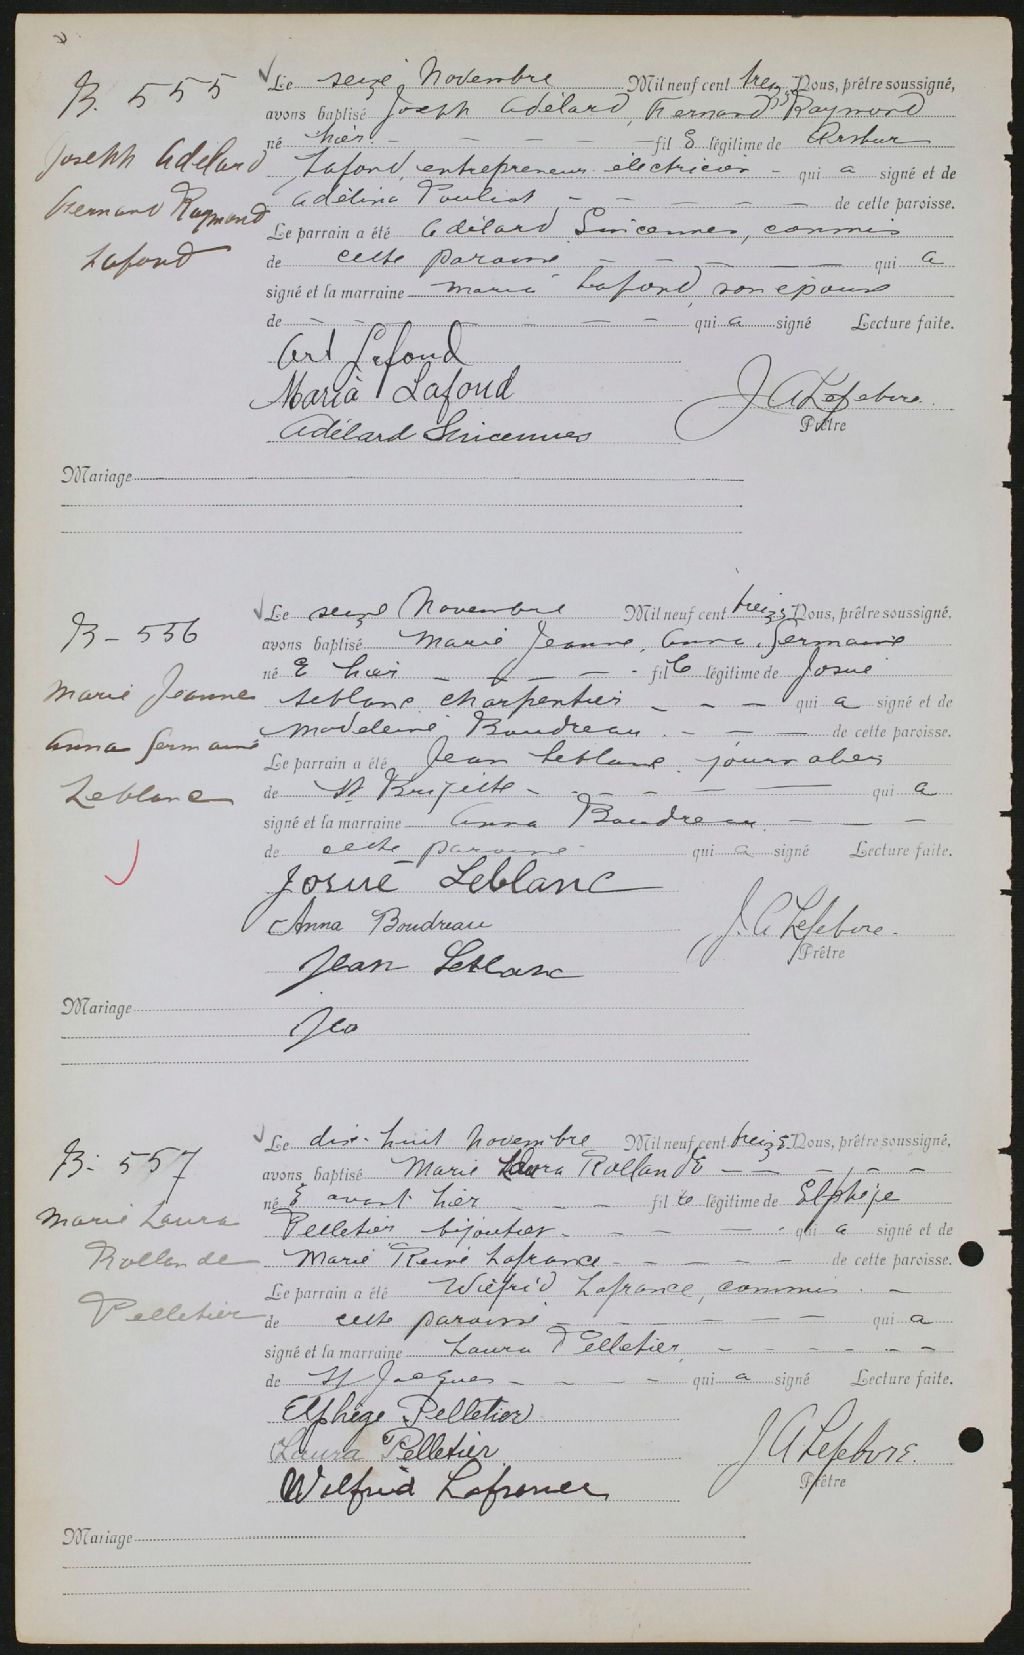 B. 555
Joseph Adélard
Fernand Raymond
Lafond
Le seize Novembre Mil neuf cent treize Nous, prêtre soussigné,
avons baptisé Joseph Adélard, Fernand Raymond
né hier - - - - - fil s légitime de Arthur
Lafond, entrepreneur électricien - qui a signé et de
Adélina Pouliot, - - - - - de cette paroisse.
Le parrain a été Adélard Sincennes, commis
de cette paroisse - - - - qui a
signé et la marraine Maria Lafond, son épouse
de - - - - - - qui a signé Lecture faite.
Art Lafond
Maria Lafond
Adélard Sincennes
J A Lefebvre.
Prêtre
Mariage
B - 556
Marie Jeanne
Anna Germaine
Leblanc
Le seize Novembre Mil neuf cent treize Nous, prêtre soussigné,
avons baptisé Marie Jeanne, Anna, Germaine
né e hier - - - - - fil le légitime de Josué
Leblanc charpentier - - - qui a signé et de
Madeleine Boudreau - - - de cette paroisse.
Le parrain a été Jean Leblanc journalier
de St Brigitte - - - - - qui a
signé et la marraine Anna Boudreau - - -
de cette paroisse - qui a signé Lecture faite.
Josué Leblanc
Anna Boudreau
Jean Leblanc
J. A Lefebvre.
Prêtre
Mariage
Jea
B - 557
Marie Laura
Rollande
Pelletier
Le dix-huit Novembre Mil neuf cent treize Nous, prêtre soussigné,
avons baptisé Marie Laura Rollande - - - -
né e avant hier - - - fil le légitime de Elphège
Pelletier bijoutier - - - - - qui a signé et de
Marie Reine Lafrance - - - - - de cette paroisse.
Le parrain a été Wilfrid Lafrance, commis -
de cette paroisse - - - - - qui a
signé et la marraine Laura Pelletier, - - - - -
de St Jacques - - - - qui a signé Lecture faite.
Elphège Pelletier
Laura Pelletier
Wilfrid Lafrance
J A Lefebvre.
Prêtre
Mariage